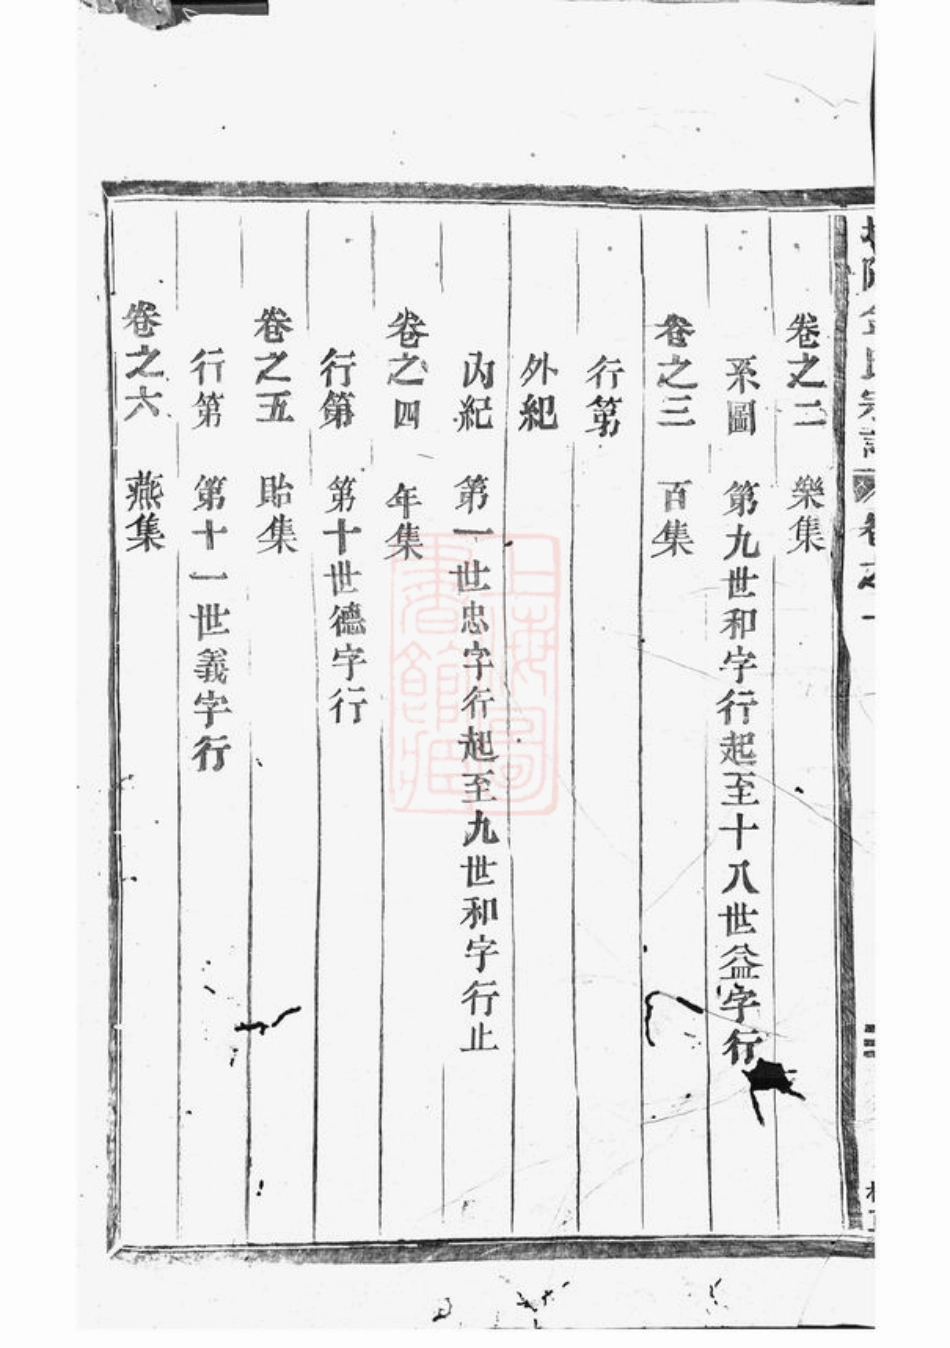 卷之二　樂集
系圖　第九世和字行起至十八世益字行
卷之三　百集
行第
外紀
內紀　第一世忠字行起至九世和字行止
卷之四　年集
行第　第十世德字行
卷之五　貽集
行第　第十一世義字行
卷之六　燕集
上海圖書館藏